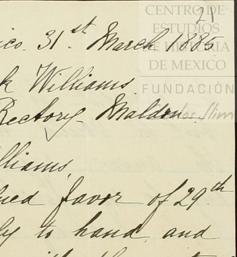 21
CENTRO DE
ESTUDIOS
DE HISTORIA
DE MEXICO
FUNDACIÓN
ico. 31st March 1885
k Williams.
Rectory, Maldon
lliams
ued favor of 29th
ly to hand and